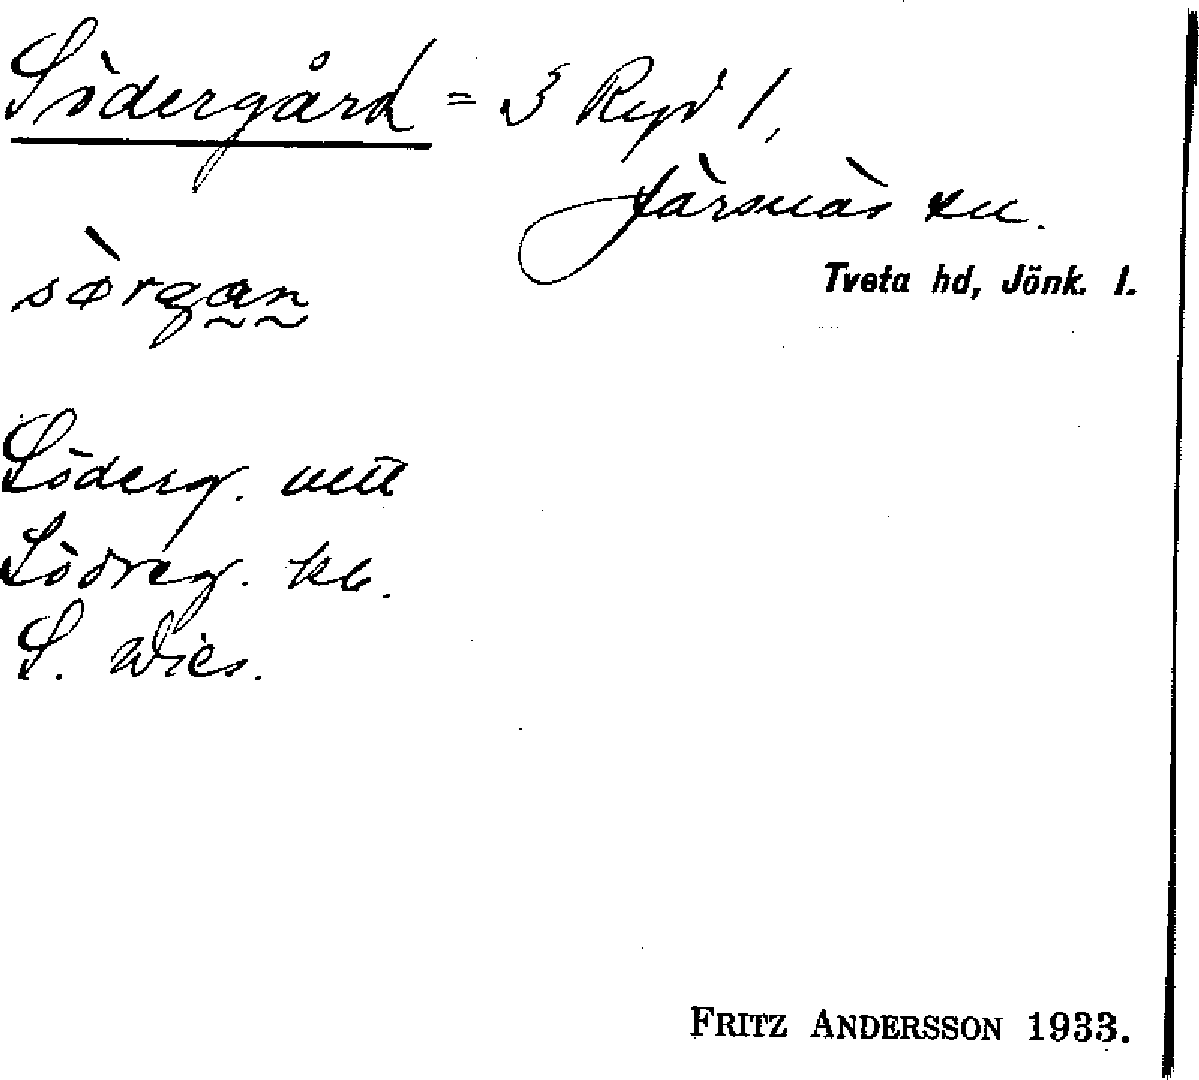 Södergård = 3 Ryd 1,
Järsnäs sn.
Tveta hd, Jönk. l.
sørgan
Söderg.
Södreg. kb.
S.
FRITZ ANDERSSON 1933.